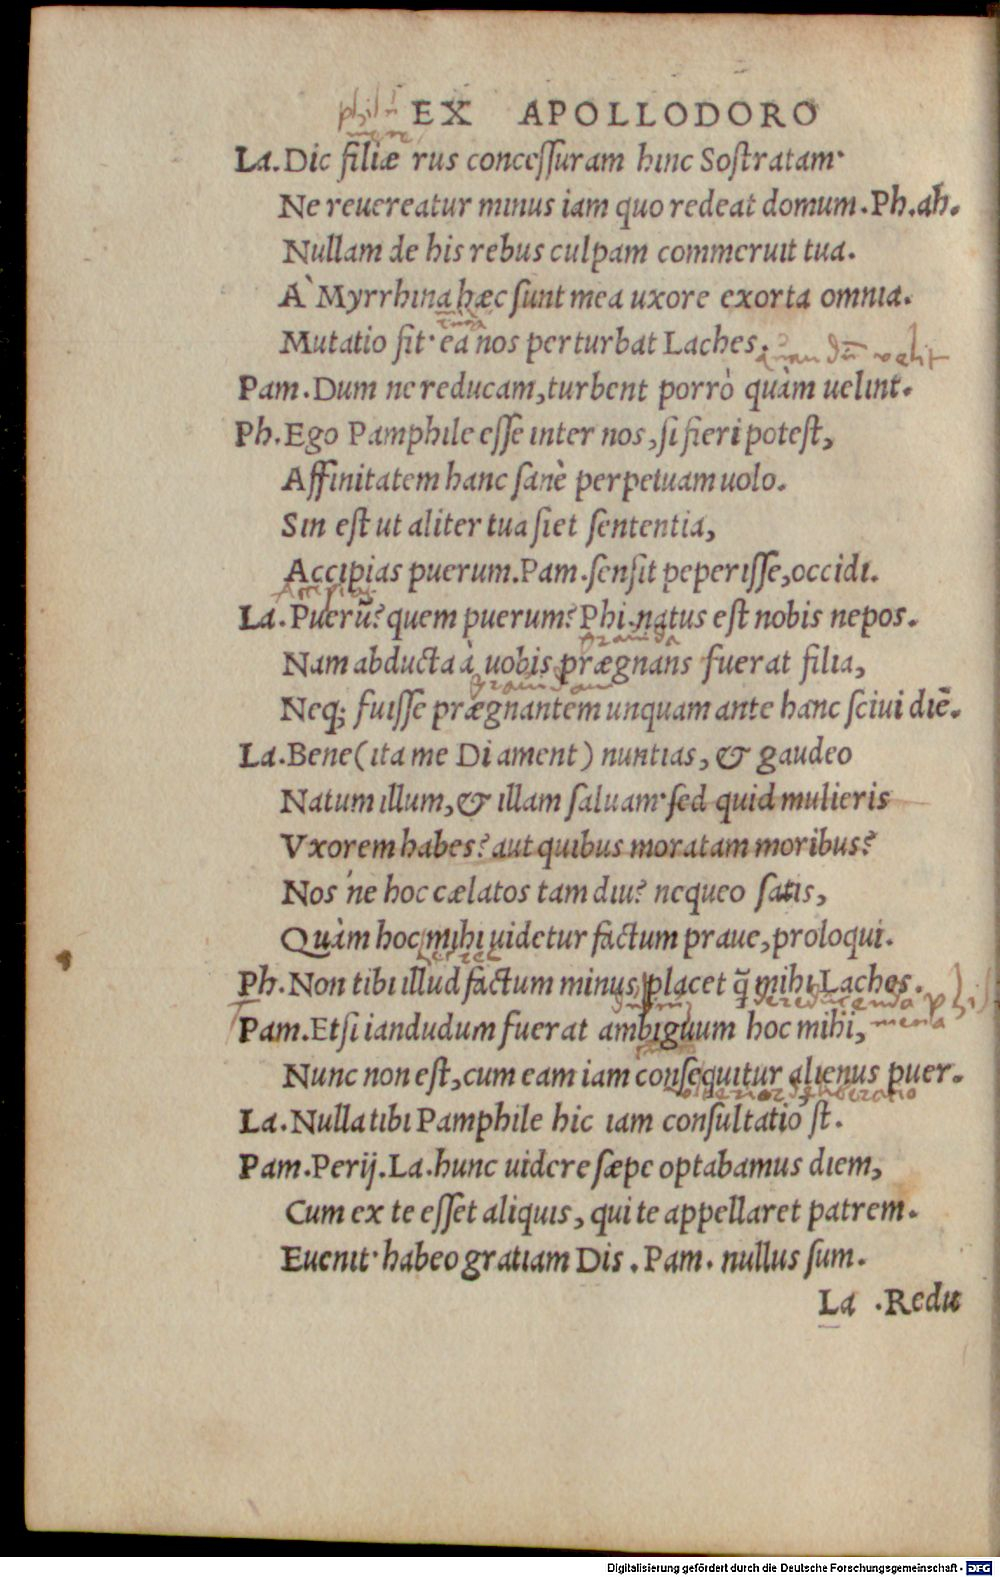 EX APOLLODORO
La.Dic filiæ rus concessuram hinc Sostratam·
Ne reuereatur minus iam quo redeat domum.Ph.ah.
Nullam de his rebus culpam commeruit tua.
A` Myrrhina hæc sunt mea uxore exorta omnia.
Mutatio fit· ea nos perturbat Laches.
Pam.Dum ne reducam,turbent porrò quàm uelint.
Ph.Ego Pamphile esse inter nos,si fieri potest,
Affinitatem hanc sanè perpetuam uolo.
Sin est ut aliter tua siet sententia,
Accipias puerum.Pam.sensit peperisse,occidi.
Accipias
La.Puerũ? quem puerum? Phi.natus est nobis nepos.
grauida
Nam abducta à uobis prægnans fuerat filia,
grauidam
Neq; fuisse prægnantem unquam ante hanc sciui diẽ.
La.Bene(ita me Di ament) nuntias, & gaudeo
Natum illum,& illam saluam· sed quid mulieris
Vxorem habes? aut quibus moratam moribus?
Nos'ne hoc cælatos tam diu? nequeo satis,
Quàm hoc mihi uidetur factum praue,proloqui.
Ph.Non tibi illud factum minus placet q̃ mihi Laches.
Pam.Etsi iandudum fuerat ambiguum hoc mihi,
Nunc non est,cum eam iam consequitur alienus puer.
La.Nulla tibi Pamphile hic iam consultatio st.
Pam.Perij.La.hunc uidere sæpe optabamus diem,
Cum ex te esset aliquis, qui te appellaret patrem.
Euenit·habeo gratiam Dis.Pam.nullus sum.
La .Redu
Digitalisierung gefördert durch die Deutsche Forschungsgemeinschaft - DFG